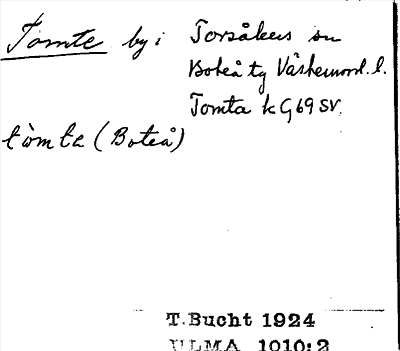 Tomte by i Torsåkers sn
Boteå tg Västernorrl. l.
Tomta k G69 SV.
tòmta (Boteå)
T. Bucht 1924
ULMA 1010:2